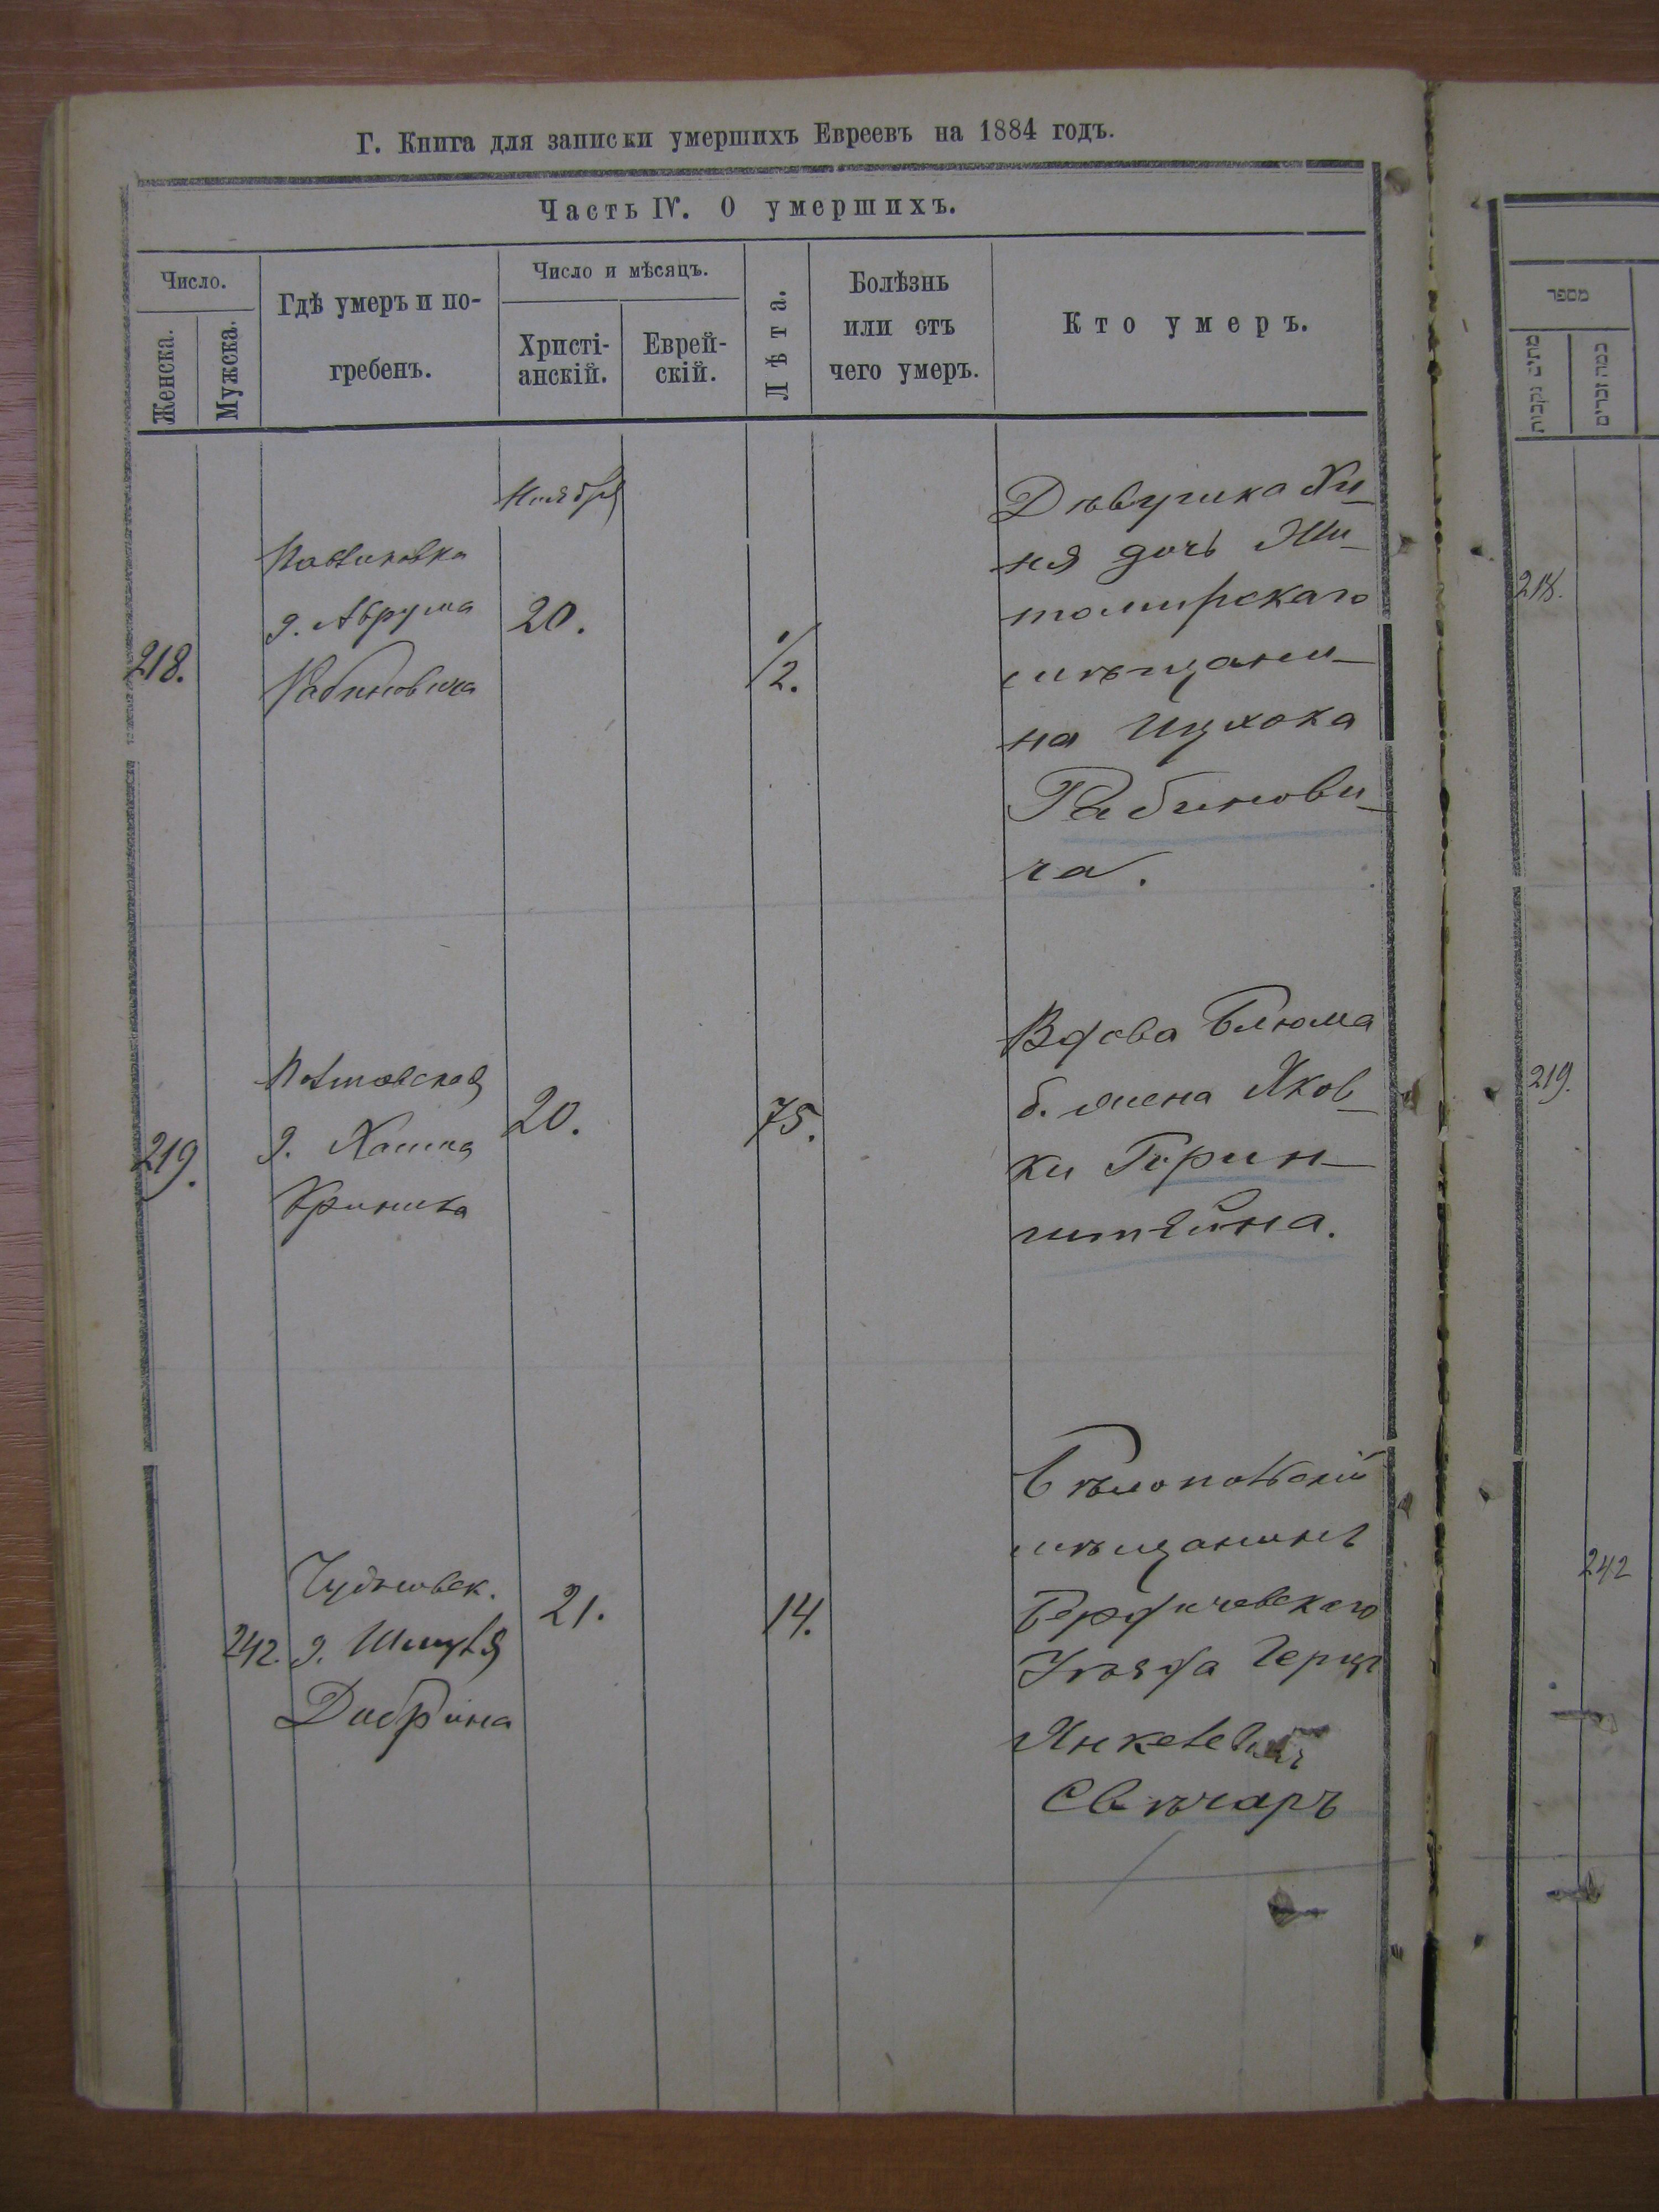 Г. Книга для записки умершихъ Евреевъ на 1884 годъ.
Часть IV. О умершихъ.
Число.
Женска.
Мужска.
Гдѣ умеръ и по-
гребенъ.
Число и мѣсяцъ.
Христі-
анскій.
Еврей-
скій.
Лѣта.
Болѣзнь
или отъ
чего умеръ.
Кто умеръ.
218.
Павликовка
д. Аврума
Рабиновича
Ноября
20.
1/2.
Дѣвушка Хи-
ня дочь Жи-
томирскаго
мѣщани-
на Ицхока
Рабинови-
ча.
219.
д.
20.
75.
Вдова Блюма
б. жена Янков-
ки Горин-
штейна.
242.
Чудновск.
д. Шмуля
Добрина
21.
14.
мѣщанинъ
Бердичевскаго
Уѣзда Герш
Янкелевич
Свѣчаръ
מספר
מתים נקבות
כמה זכרים
218.
219.
242